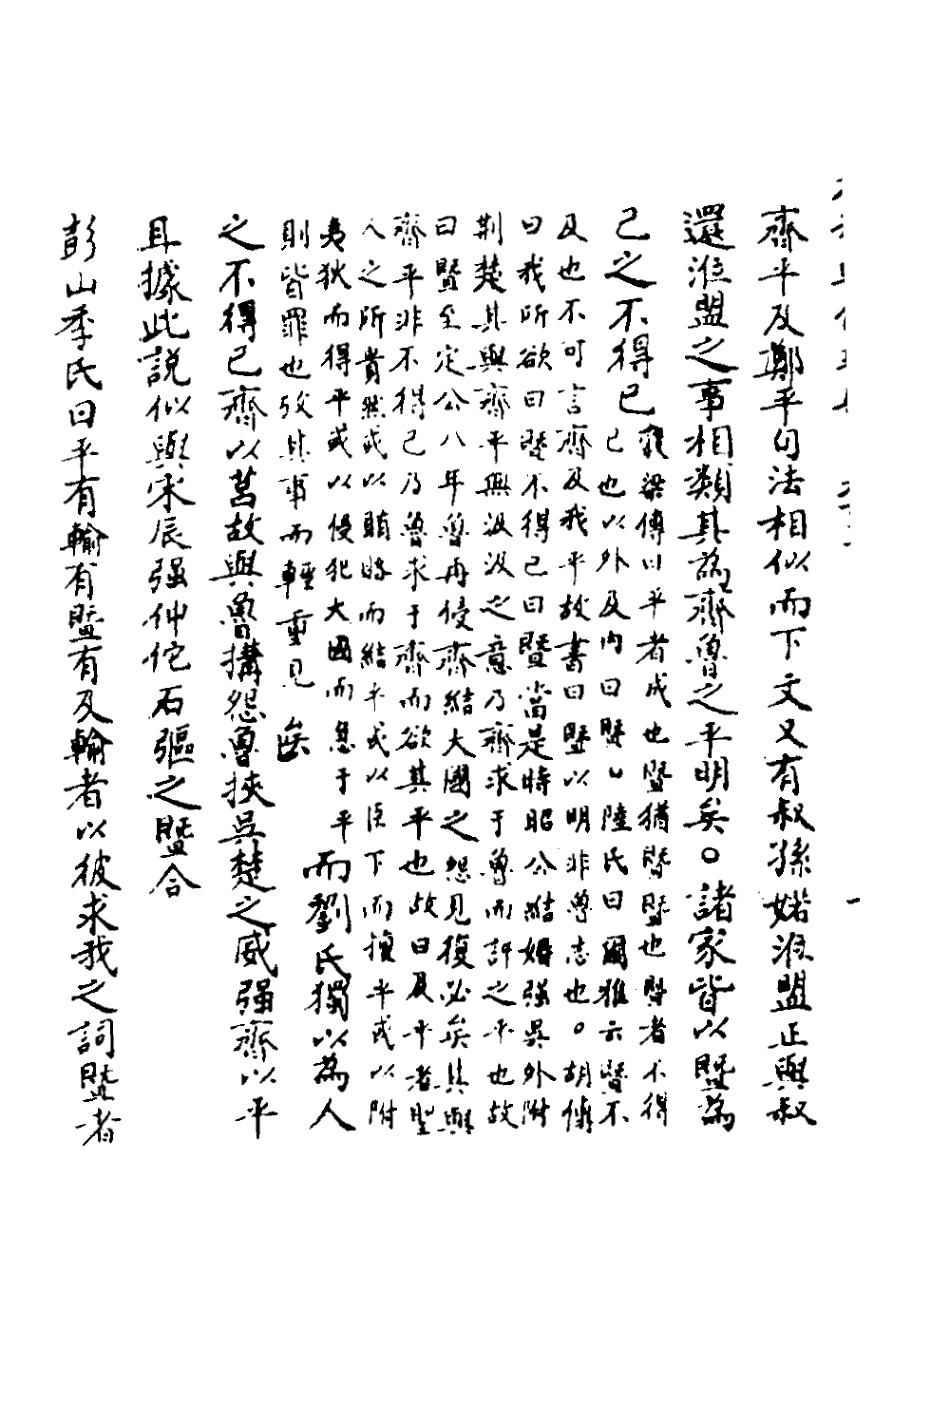 齊平及鄭平句法相似而下文又有叔孫婼涖盟正與叔
還涖盟之事相類其為齊魯之平明矣○諸家皆以暨為
己之不得已
穀梁傳曰平者成也暨猶暨暨也暨者不得
已也以外及內曰暨○陸氏曰爾雅云暨不
及也不可言齊及我平故書曰暨以明非魯志也○胡傳
曰我所欲曰及不得已曰暨當是時昭公結婚強吳外附
荆楚其與齊平無汲汲之意乃齊求于魯而許之平也故
曰暨至定公八年魯再侵齊結大國之怨見復必矣其與
齊平非不得已乃魯求于齊而欲其平也故曰及平者聖
人之所貴然或以賄賂而結平或以臣下而擅平或以附
夷狄而得平或以侵犯大國而急于平
則皆罪也攷其事而輕重見矣
而劉氏獨以為人
之不得已齊以莒故與魯搆怨魯挾吳楚之威强齊以平
且據此說似與宋辰强仲佗石彄之暨合
彭山季氏曰平有輸有暨有及輸者以彼求我之詞暨者